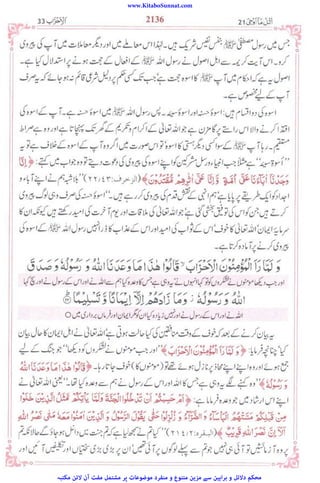 www.KitaboSunnat.com
اتل ما اوحی 21
2136
الاحزاب 33
جس میں رسول مصطفیٰ ﷺ بنفس نفیس شریک ہیں۔ لہٰذا اس معاملے میں اور دیگر معاملات میں آپ کی پیروی
کرو۔ اس آیت کریمہ سے اہل اصول نے رسول اللہ ﷺ کے افعال کے حجت ہونے پر استدلال کیا ہے۔
اصول یہ ہے کہ احکام میں آپ ﷺ کا اسوہ حجت ہے جب تک کسی حکم پر دلیل شرعی قائم نہ ہو جائے کہ یہ صرف
آپ کے لیے مخصوص ہے۔
اسوہ کی دو اقسام ہیں: اسوۂ حسنہ اور اسوۂ سیئہ۔ پس رسول اللہ ﷺ میں اسوۂ حسنہ ہے۔ آپ کے اسوہ کی
اقتدا کرنے والا اس راستے پر گامزن ہے جو اللہ تعالیٰ کے اکرام و تکریم کے گھر تک پہنچاتا ہے اور وہ ہے صراط
مستقیم۔ رہا آپ کے سوا کسی دیگر ہستی کا اسوہ تو اس صورت میں اگر وہ آپ کے اسوہ کے خلاف ہے تو یہ
”اسوۂ سیئہ“ ہے مثلاً جب انبیاء و رسل مشرکین کو اپنے اسوہ کی پیروی کی دعوت دیتے تو وہ جواب میں کہتے: ﴿اِنَّا
وَجَدْنَآ اٰبَآءَنَا عَلٰٓی اُمَّةٍ وَّ اِنَّا عَلٰٓی اٰثٰرِهِمْ مُّقْتَدُوْنَ﴾ (الزخرف:۴۳/۲۲) ”بلاشبہ ہم نے اپنے آباء و
اجداد کو ایک طریقے پر پایا ہے ہم انھی کے نقش قدم کی پیروی کر رہے ہیں۔“ اسوۂ حسنہ کی صرف وہی لوگ پیروی
کرتے ہیں جن کو اس کی توفیق بخشی گئی ہے جو اللہ تعالیٰ کی ملاقات اور یوم آخرت کی امید رکھتے ہیں کیونکہ ان کا
سرمایۂ ایمان اللہ تعالیٰ کا خوف اس کے ثواب کی امید اور اس کے عذاب کا ڈر انہیں رسول اللہ ﷺ کے اسوہ کی
پیروی کرنے پر آمادہ کرتا ہے۔
وَ لَمَّا رَاَ الْمُؤْمِنُوْنَ الْاَحْزَابَ ۙ قَالُوْا هٰذَا مَا وَعَدَنَا اللّٰهُ وَ رَسُوْلُهٗ وَ صَدَقَ
اور جب دیکھا مومنوں نے لشکروں کو تو کہا انہوں نے یہ وہی ہے جس کا وعدہ کیا ہم سے اللہ نے اور اس کے رسول نے اور سچ کہا
اللّٰهُ وَ رَسُوْلُهٗ ۫ وَمَا زَادَهُمْ اِلَّآ اِيْمَانًا وَّ تَسْلِيْمًا
اللہ نے اور اس کے رسول نے اور نہیں زیادہ کیا ان کو مگر ایمان اور فرماں برداری میں
یہ بیان کرنے کے بعد کہ خوف کے وقت منافقین کی کیا حالت ہوتی ہے اللہ تعالیٰ نے اہل ایمان کا حال بیان
کیا چنانچہ فرمایا: ﴿وَ لَمَّا رَاَ الْمُؤْمِنُوْنَ الْاَحْزَابَ﴾ ”اور جب مومنوں نے لشکروں کو دیکھا“ جو جنگ کے لیے
جمع ہوئے اور وہ اپنے اپنے محاذ پر نازل ہوئے تو (مومنوں کا) خوف جاتا رہا۔ ﴿قَالُوْا هٰذَا مَا وَعَدَنَا اللّٰهُ
وَ رَسُوْلُهٗ﴾ ”وہ کہنے لگے یہ وہی ہے جس کا اللہ اور اس کے رسول نے ہم سے وعدہ کیا تھا۔“ یعنی اللہ تعالیٰ نے
اپنے اس ارشاد میں جو وعدہ فرمایا ہے: ﴿اَمْ حَسِبْتُمْ اَنْ تَدْخُلُوا الْجَنَّةَ وَلَمَّا يَاْتِكُمْ مَّثَلُ الَّذِيْنَ خَلَوْا
مِنْ قَبْلِكُمْ مَسَّتْهُمُ الْبَاْسَآءُ وَالضَّرَّآءُ وَ زُلْزِلُوْا حَتّٰى يَقُوْلَ الرَّسُوْلُ وَ الَّذِيْنَ اٰمَنُوْا مَعَهٗ مَتٰى نَصْرُ اللّٰهِ
اَلَآ اِنَّ نَصْرَ اللّٰهِ قَرِيْبٌ﴾ (البقرہ:۲/۲۱۴) ”کیا تم سمجھتے ہو کہ تم جنت میں داخل ہو جاؤ گے حالانکہ تم
پر وہ آزمائشیں تو آئی ہی نہیں جو تم سے پہلے لوگوں پر آئی تھیں ان پر بڑی بڑی سختیاں اور تکلیفیں آئیں اور
محکم دلائل و براہین سے مزین متنوع و منفرد موضوعات پر مشتمل مفت آن لائن مکتبہ